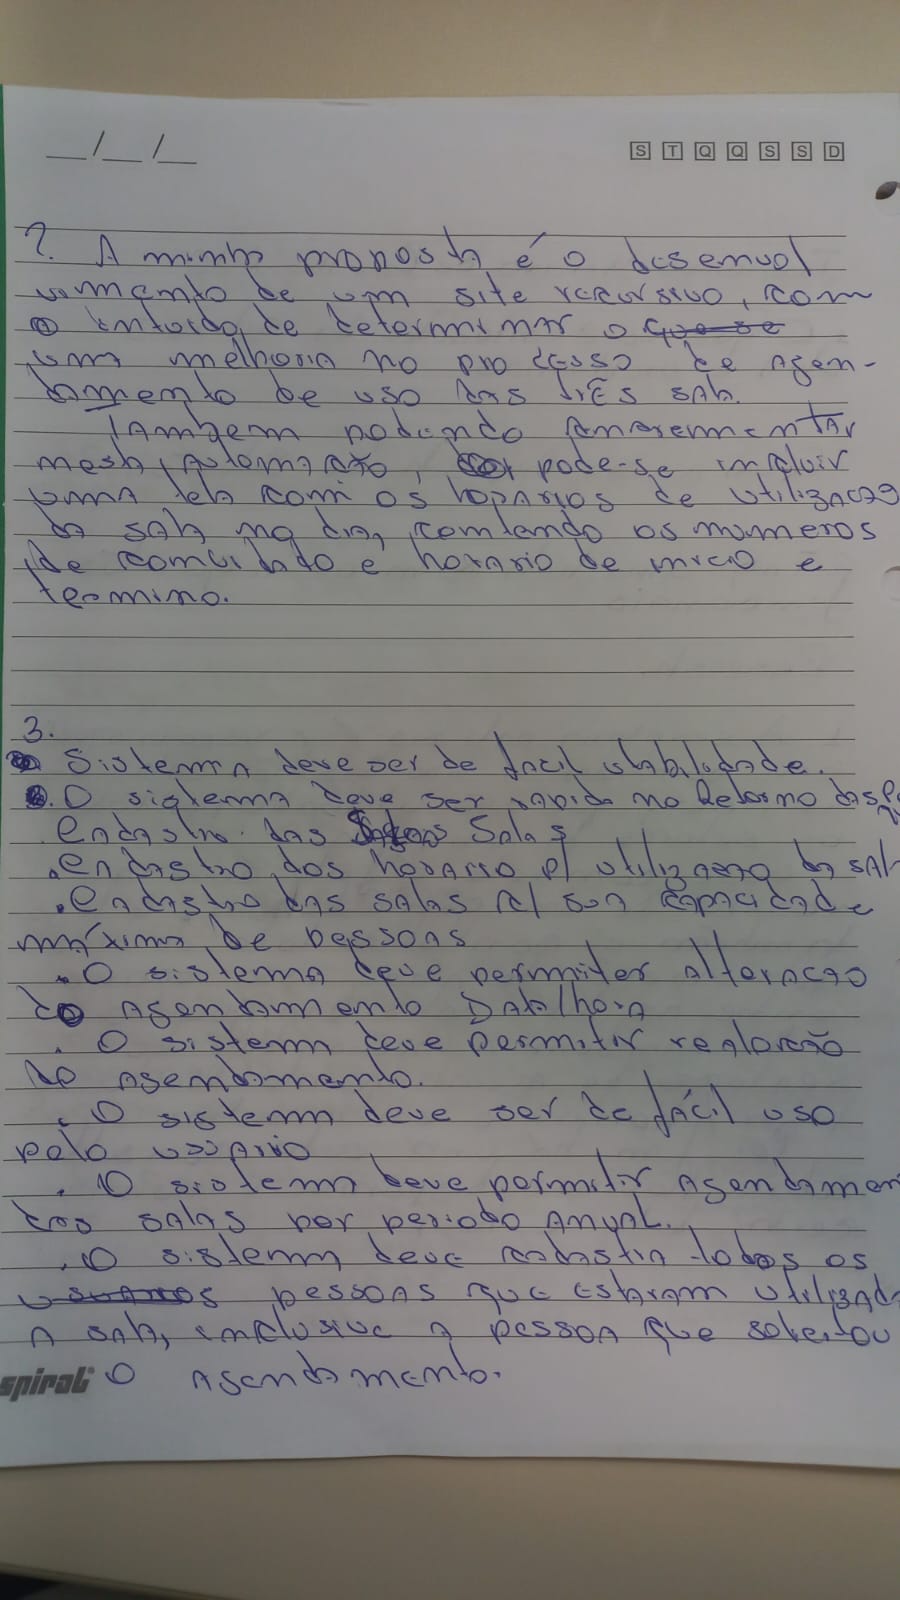 __/__/__
S T Q Q S S D
?. A minha proposta é o desenvol
vimento de um site recursivo, com
o intuido, de determinar o que se
uma melhoria no processo de agen-
damento de uso das três sala.
Também podendo
mesta automação, pode-se incluir
uma tela com os horarios de utilização
da sala no dia, contendo os numeros
de convidado e horario de inicio e
termino.
3.
Sistema deve ser de facil usabilidade.
. O sistema deve ser rapido no Retorno das
Cadastro das Salas
. Cadastro dos horario p/ utilização da sala
. Cadastro das salas c/ sua capacidade
máxima de pessoas
. O sistema deve permiter alteração
do agendamento Data/hora
. O sistema deve permitir
do agendamento.
. O sistema deve ser de fácil uso
pelo usuario
. O sistema deve permitir agendamen
das salas por periodo anual.
. O sistema deve cadastra todos os
usuarios pessoas que estaram utilizad
a sala, inclusive a pessoa que
spiral O agendamento.